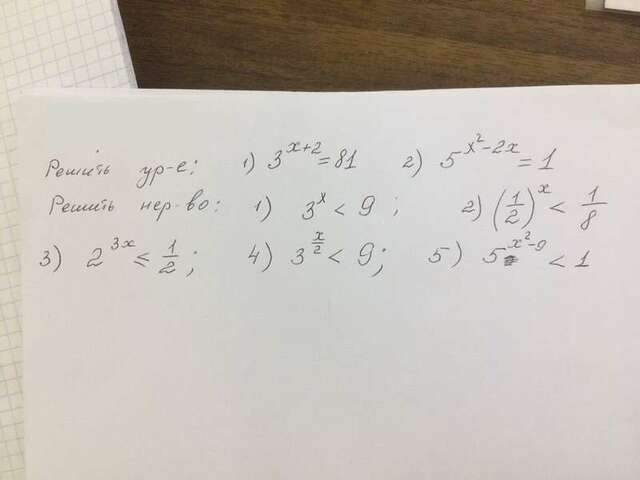 Решить ур-е: 1) 3^{x+2} = 81 2) 5^{x^2-2x} = 1
Решить нер-во: 1) 3^x < 9 ; 2) (1/2)^x < 1/8
3) 2^{3x} ≤ 1/2 ; 4) 3^{x/2} < 9; 5) 5^{x^2-9} < 1